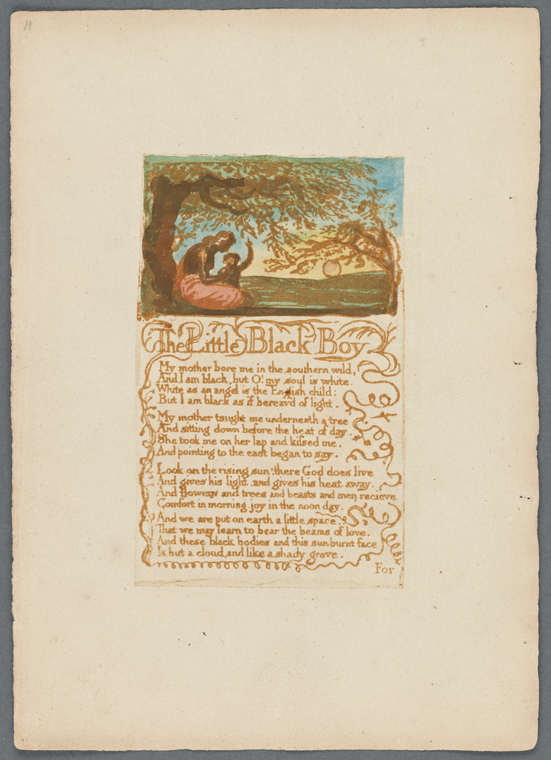 11
The Little Black Boy
My mother bore me in the southern wild,
And I am black, but O! my soul is white.
White as an angel is the English child:
But I am black as if bereav'd of light.
My mother taught me underneath a tree
And sitting down before the heat of day
She took me on her lap and kissed me.
And pointing to the east began to say.
Look on the rising sun: there God does live
And gives his light, and gives his heat away.
And flowers and trees and beasts and men recieve
Comfort in morning joy in the noon day.
And we are put on earth a little space.
That we may learn to bear the beams of love.
And these black bodies and this sun-burnt face
Is but a cloud, and like a shady grove.
For